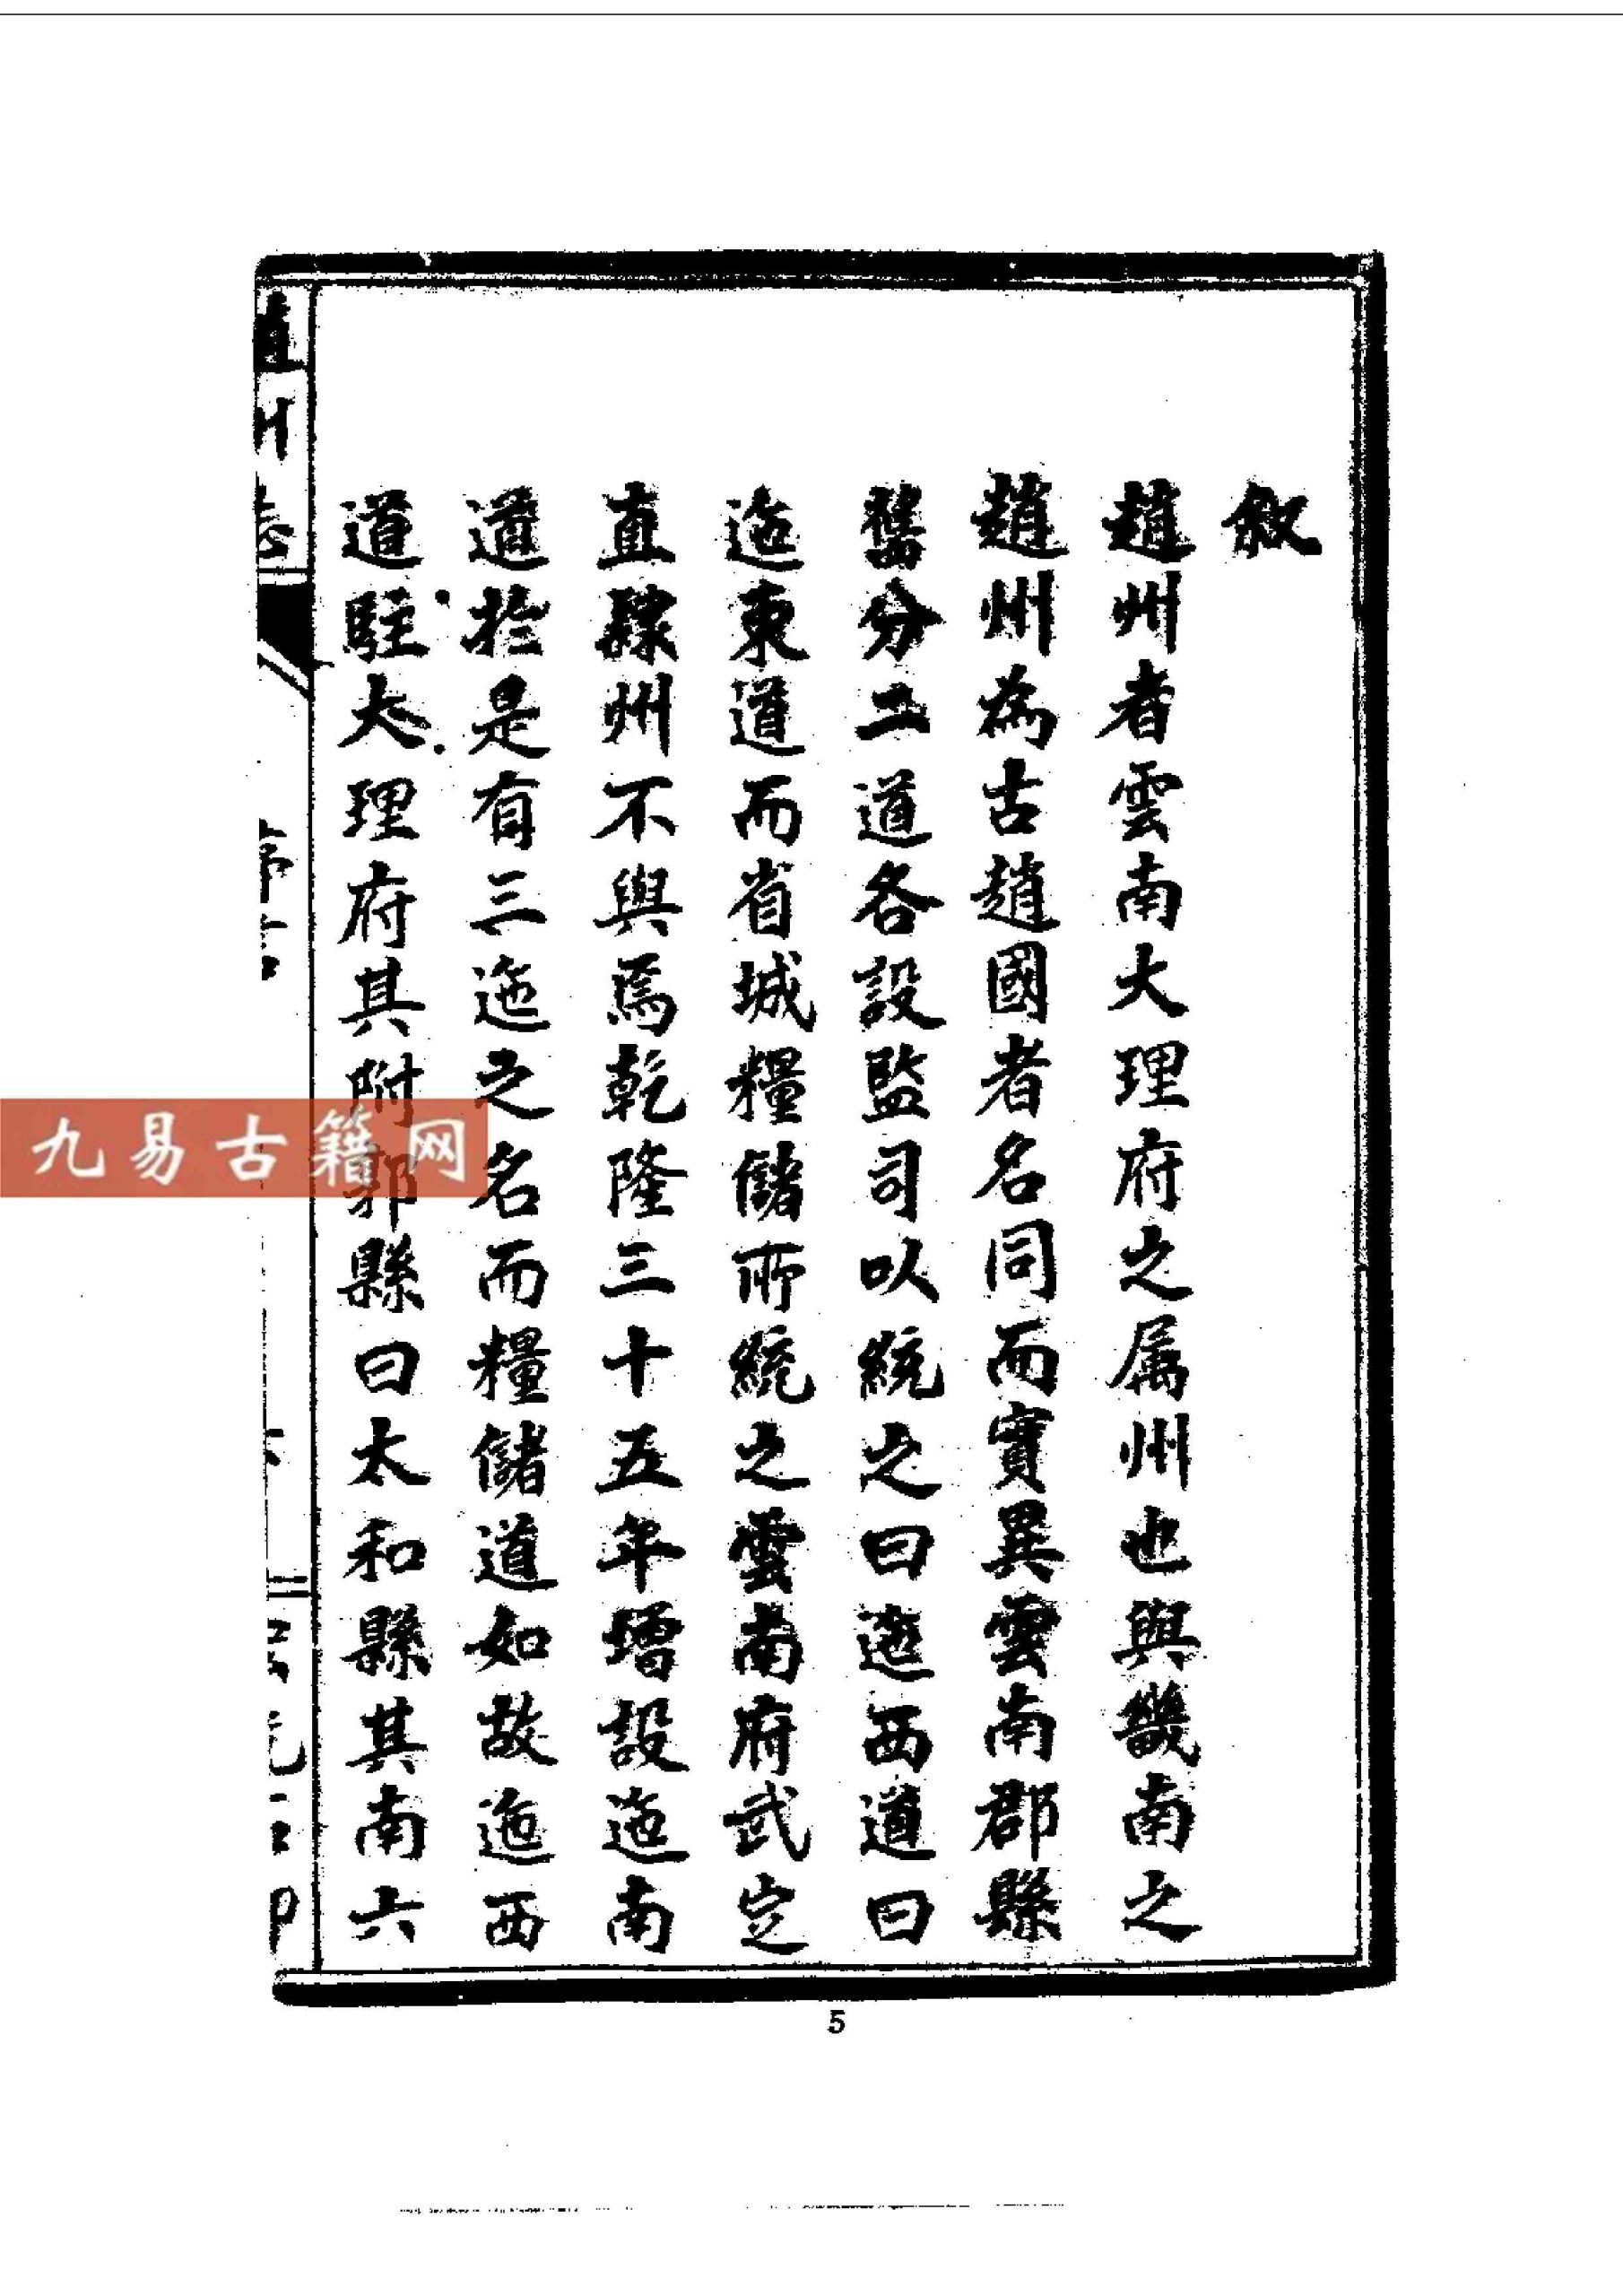 敘
趙州者雲南大理府之属州也與畿南之
趙州為古趙國者名同而實異雲南郡縣
舊分二道各設監司以統之曰迤西道曰
迤東道而省城糧儲所統之雲南府武定
直隸州不與焉乾隆三十五年增設迤南
道於是有三迤之名而糧儲道如故迤西
道駐大理府其附郭縣曰太和縣其南六
九易古籍网
5